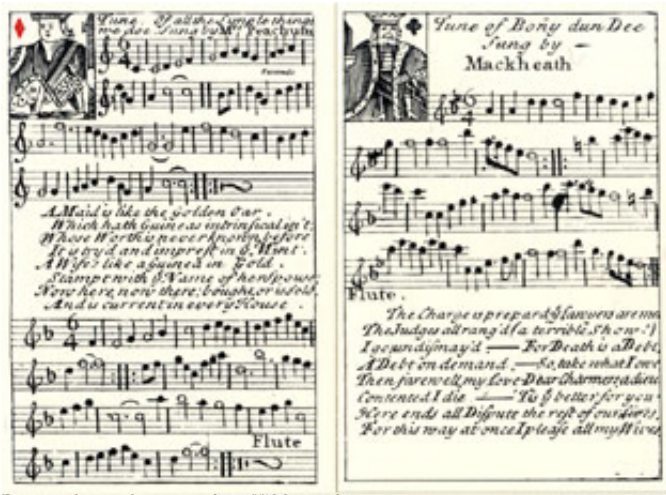 Tune. Of all the Simple things
we doe Sung by Mr. Peachum
A Maid is like the golden Oar.
Which hath Guineas intrinsical in't;
Whose Worth is never known before
It is try'd and imprest in ye Mint.
A Wife's like a Guinea in Gold.
Stampt with ye Name of her Spouse
Now here, now there; bought, or is sold.
And is current in every House.
Flute
Tune of Bony dun Dee
Sung by
Mackheath
Flute.
The Charge is prepar'd ye Lawyers are me
The Judges all rang'd (a terrible Show!)
I go undismay'd — For Death is a Debt,
A Debt on demand. — So, take what I owe
Then farewell, my Love Dear Charmers
Contented I die — Tis ye better for you
Here ends all Dispute the rest of our Lives,
For this way at once I please all my Wives